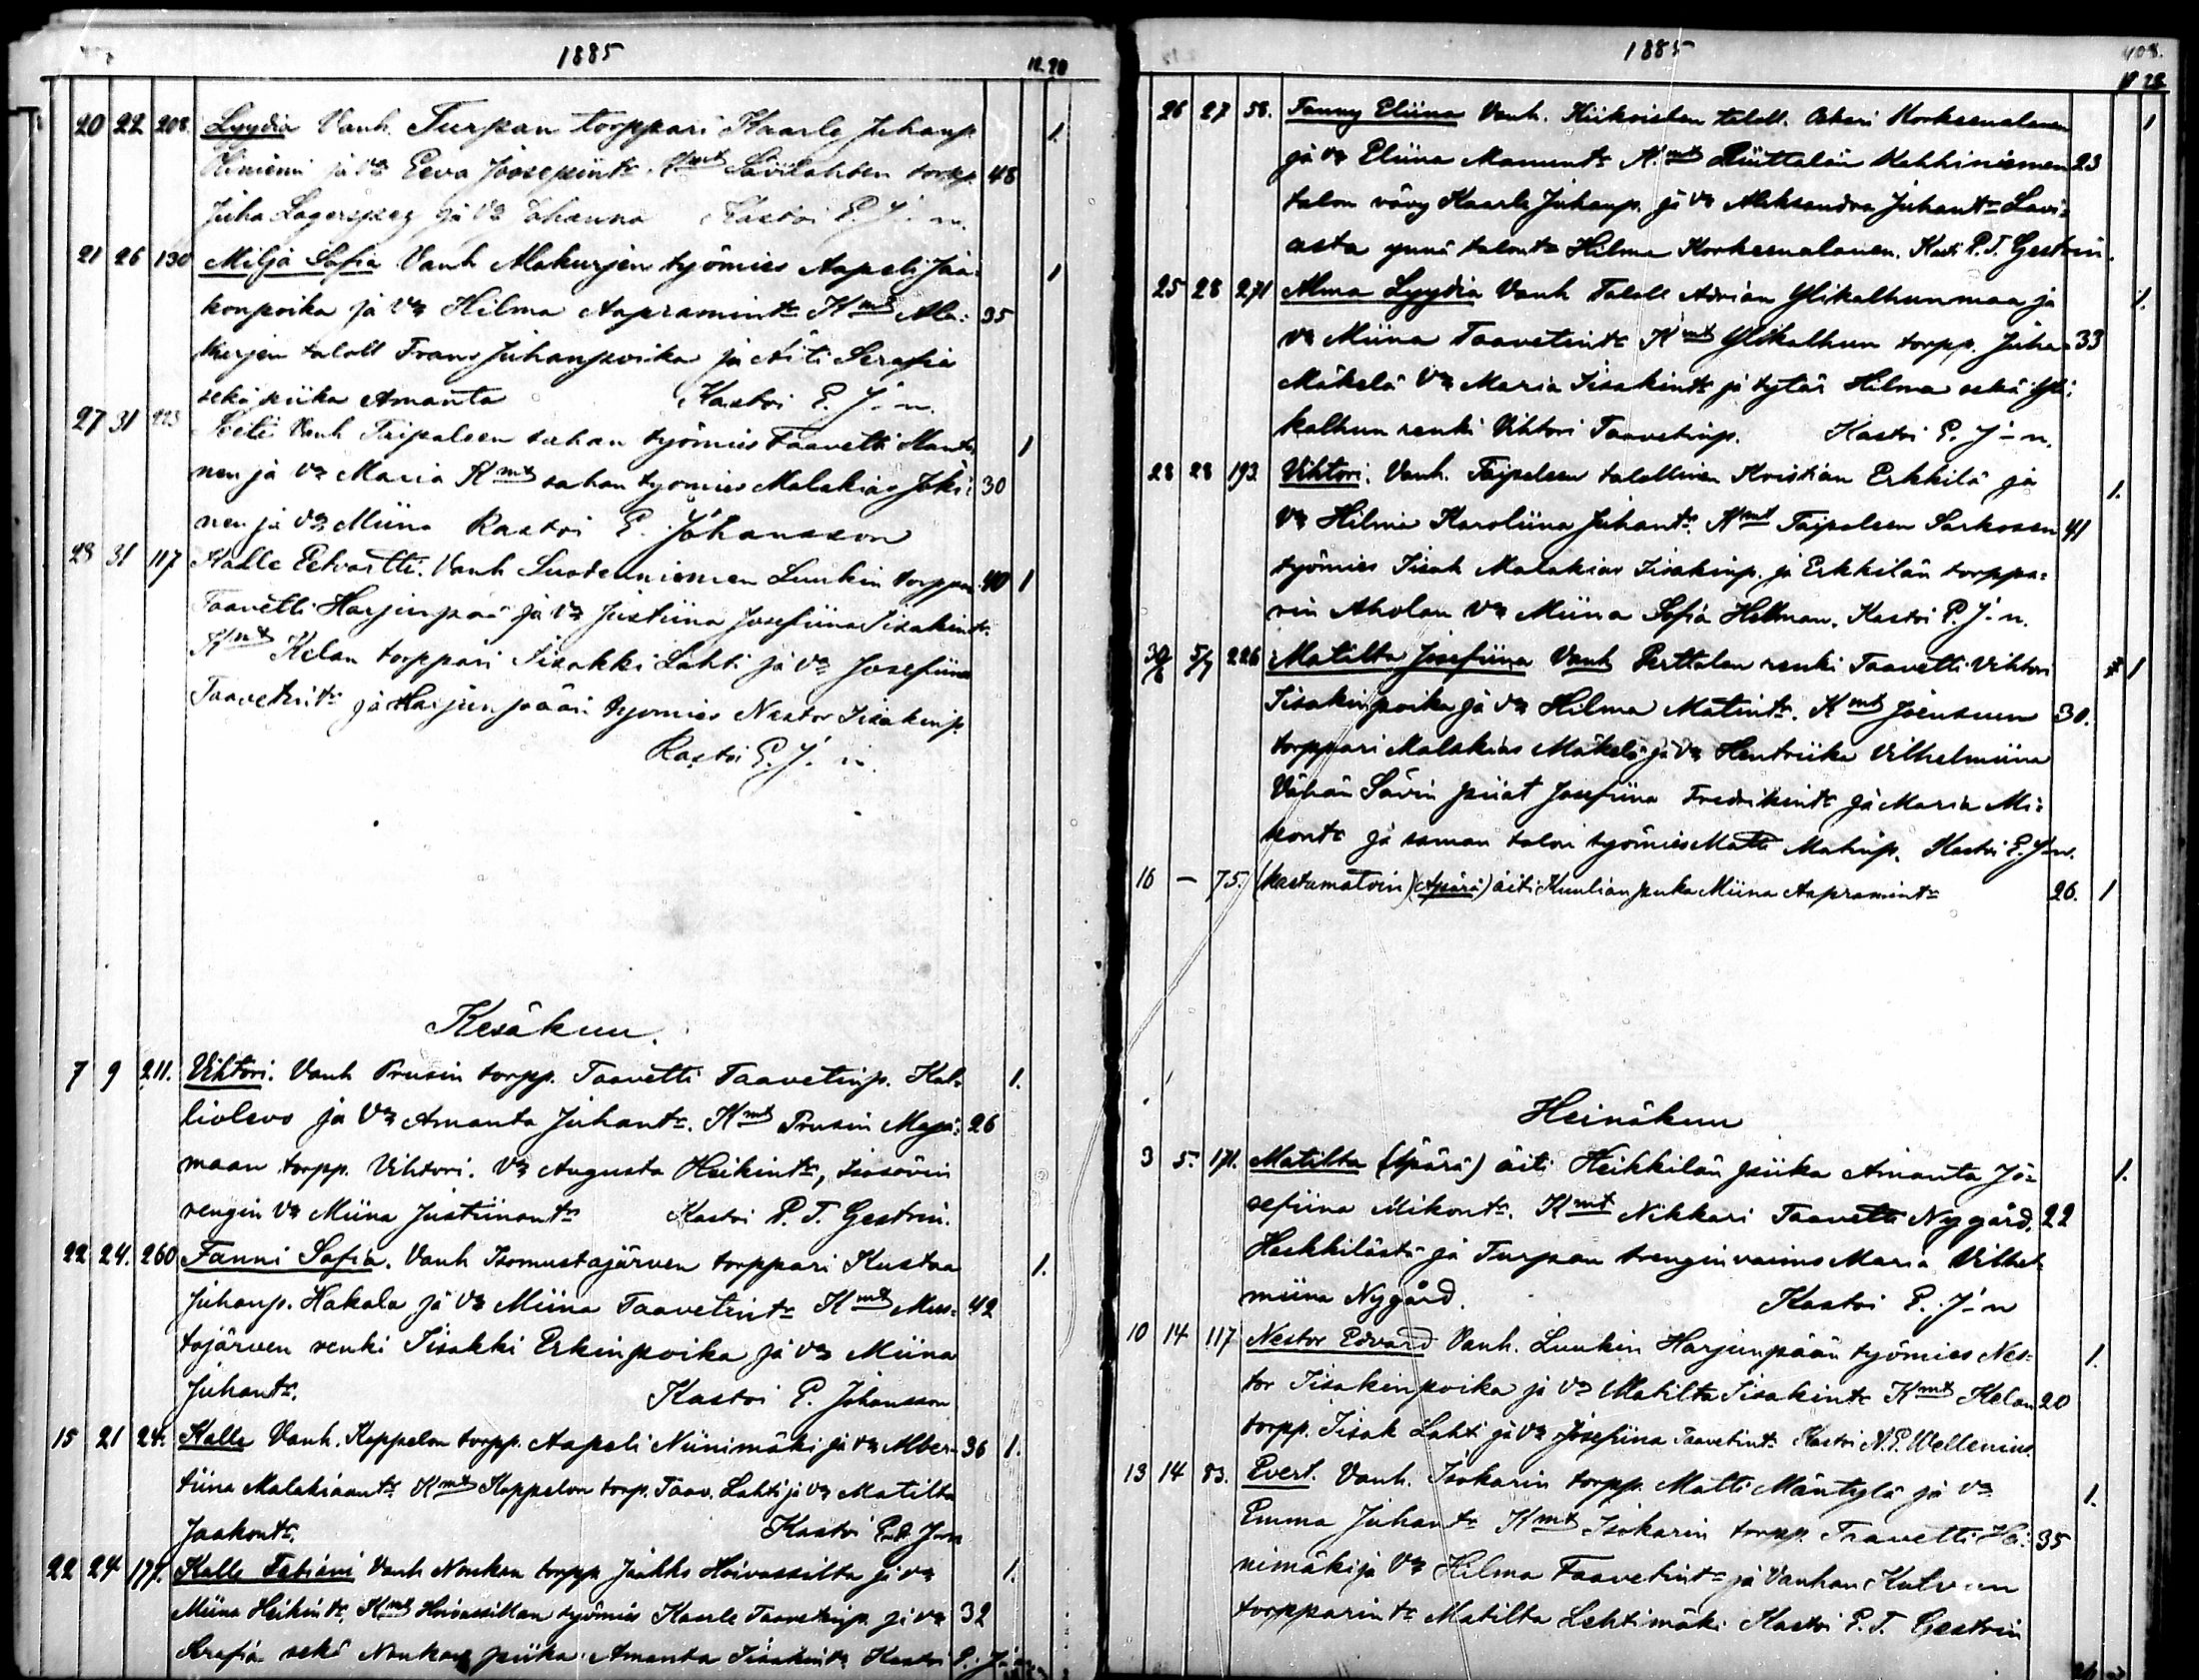 1885
12. 28
20 22 208. Lyydia Vanh. Turpan torppari Kaarle Juhanp. 1.
ja va Eeva Joosepint. Kmt Sävilahten torpp. 48
Juha Lagerspez ja va Johanna Kastoi E. J-n.
21 26 130 Milja Sofia Vanh Alakurjen työmies Aapeli Jaa- 1
konpoika ja va Hilma Aapramint. Kmt Ala- 35
kurjen taloll Frans Juhanpoika ja Äiti Serafia
sekä piika Amanta Kastoi E. J-n.
27 31 Vanh Taipaleen sahan työmies Taavetti Mant- 1
nen ja va Maria Kmt sahan työmies Malakias Joki- 30
nen ja va Miina Kastoi E. Johansson
28 31 117 Kalle Eetvartti. Vanh Suodenniemen Luukin torppa 40 1
Taavetti Harjunpää ja va Justiina Josefiina Iisakint.
Kmt Kelan torppari Iisakki Lahti ja va Josefiina
Taavetint. ja Harjunpään työmies Nestor Iisakinp.
Kastoi E. J-n.
Kesäkuu.
7 9 211. Vihtori. Vanh Prusin torpp. Taavetti Taavetinp. Kal- 1.
liolevo ja va Amanta Juhant. Kmt Prusin Maja- 26
maan torpp. Vihtori. va Augusta Heikint, Isosävin
rengin va Miina Justiinant Kastoi P. T. Gestrin.
22 24. 260 Fanni Sofia. Vanh Isomustajärven torppari Kustaa 1.
Juhanp. Hakala ja va Miina Taavetint. Kmt Mus- 42
tajärven renki Iisakki Erkinpoika ja va Miina
Juhant. Kastoi E. Johansson
15 21 24. Kalle Vanh. Keppelon torpp. Aapeli Niinimäki ja va Alber- 36 1.
tiina Malakiaant. Kmt Keppelon torp. Taav. Lahti ja va Matilta
Jaakont. Kastoi J-n
22 24 177. Kalle Fabiani Vanh Noukan torpp Jaakko Hoivassilta ja va 1.
Miina Heikint. Kmt Hoivassillan työmies Kaarle Taavetinp. ja va 32
Serafia sekä Noukan piika Amanta Iisakint. Kastoi E. J-n
1885
408.
12 28
26 27 58. Fanny Eliina Vanh. Kiikoisten taloll. Oskari Korkeemalanen 1
ja va Eliina Manuunt. Kmt Riuttalan Uahhiniemen 23
talon vävy Kaarle Juhanp. ja va Aleksandra Juhant. Lavi-
asta ynnä talont. Hilma Korkeemalanen. Kast. P. T. Gestrin.
25 28 271 Alma Lyydia Vanh Taloll Adrian Ylikalhunmaa ja 1.
va Miina Taavetint. Kmt Ylikalhun torpp. Juha 33
Mäkelä va Maria Iisakint. ja tytär Hilma sekä Yli-
kalhun renki Vihtori Taavetinp. Kastoi E. J-n.
28 28 193. Vihtori. Vanh. Taipaleen talollinen Kristian Erkkilä ja 1.
va Hilma Karoliina Juhant. Kmt Taipaleen Sarkosen 41
työmies Iisak Malakias Iisakinp. ja Erkkilän torppa-
rin Aholan va Miina Sofia Hellman. Kastoi E. J-n.
30/6 5/7 226 Matilta Josefiina Vanh Perttalan renki Taavetti Vihtori 1
Iisakinpoika ja va Hilma Matint. Kmt Joensuun 30.
torppari Malakias Mäkelä ja va Hentriika Vilhelmiina
Vähän Sävin piiat Josefiina Fredrikint. ja Maria Mi-
kont. ja saman talon työmies Matti Matinp. Kastoi E. J-n.
16 — 75. (kastamatoin) (Äpärä) äiti Kuulian piika Miina Aapramint. 26. 1
Heinäkuu
3 5. 171. Matilta (Äpärä) äiti Heikkilän piika Amanta Jo- 1.
sefiina Mikont. Kmt Nikkari Taavetti Nygård, 22
Heikkilästä ja Turpan trengin vaimo Maria Vilhel-
miina Nygård. Kastoi E. J-n
10 14 117 Nestor Edvard Vanh. Luukin Harjunpään työmies Nes- 1.
tor Iisakinpoika ja va Matilta Iisakint. Kmt Kelan 20
torpp. Iisak Lahti ja va Josefiina Taavetint. Kastoi N. E. Wellenius.
13 14 83. Evert. Vanh. Isokarin torpp. Matti Mäntylä ja va 1.
Emma Juhant. Kmt Isokarin torpp. Taavetti 35
nimäki ja va Hilma Taavetint. ja Vanhan Kulvaan
torpparint. Matilta Lehtimäki Kastoi P. T. Gestrin